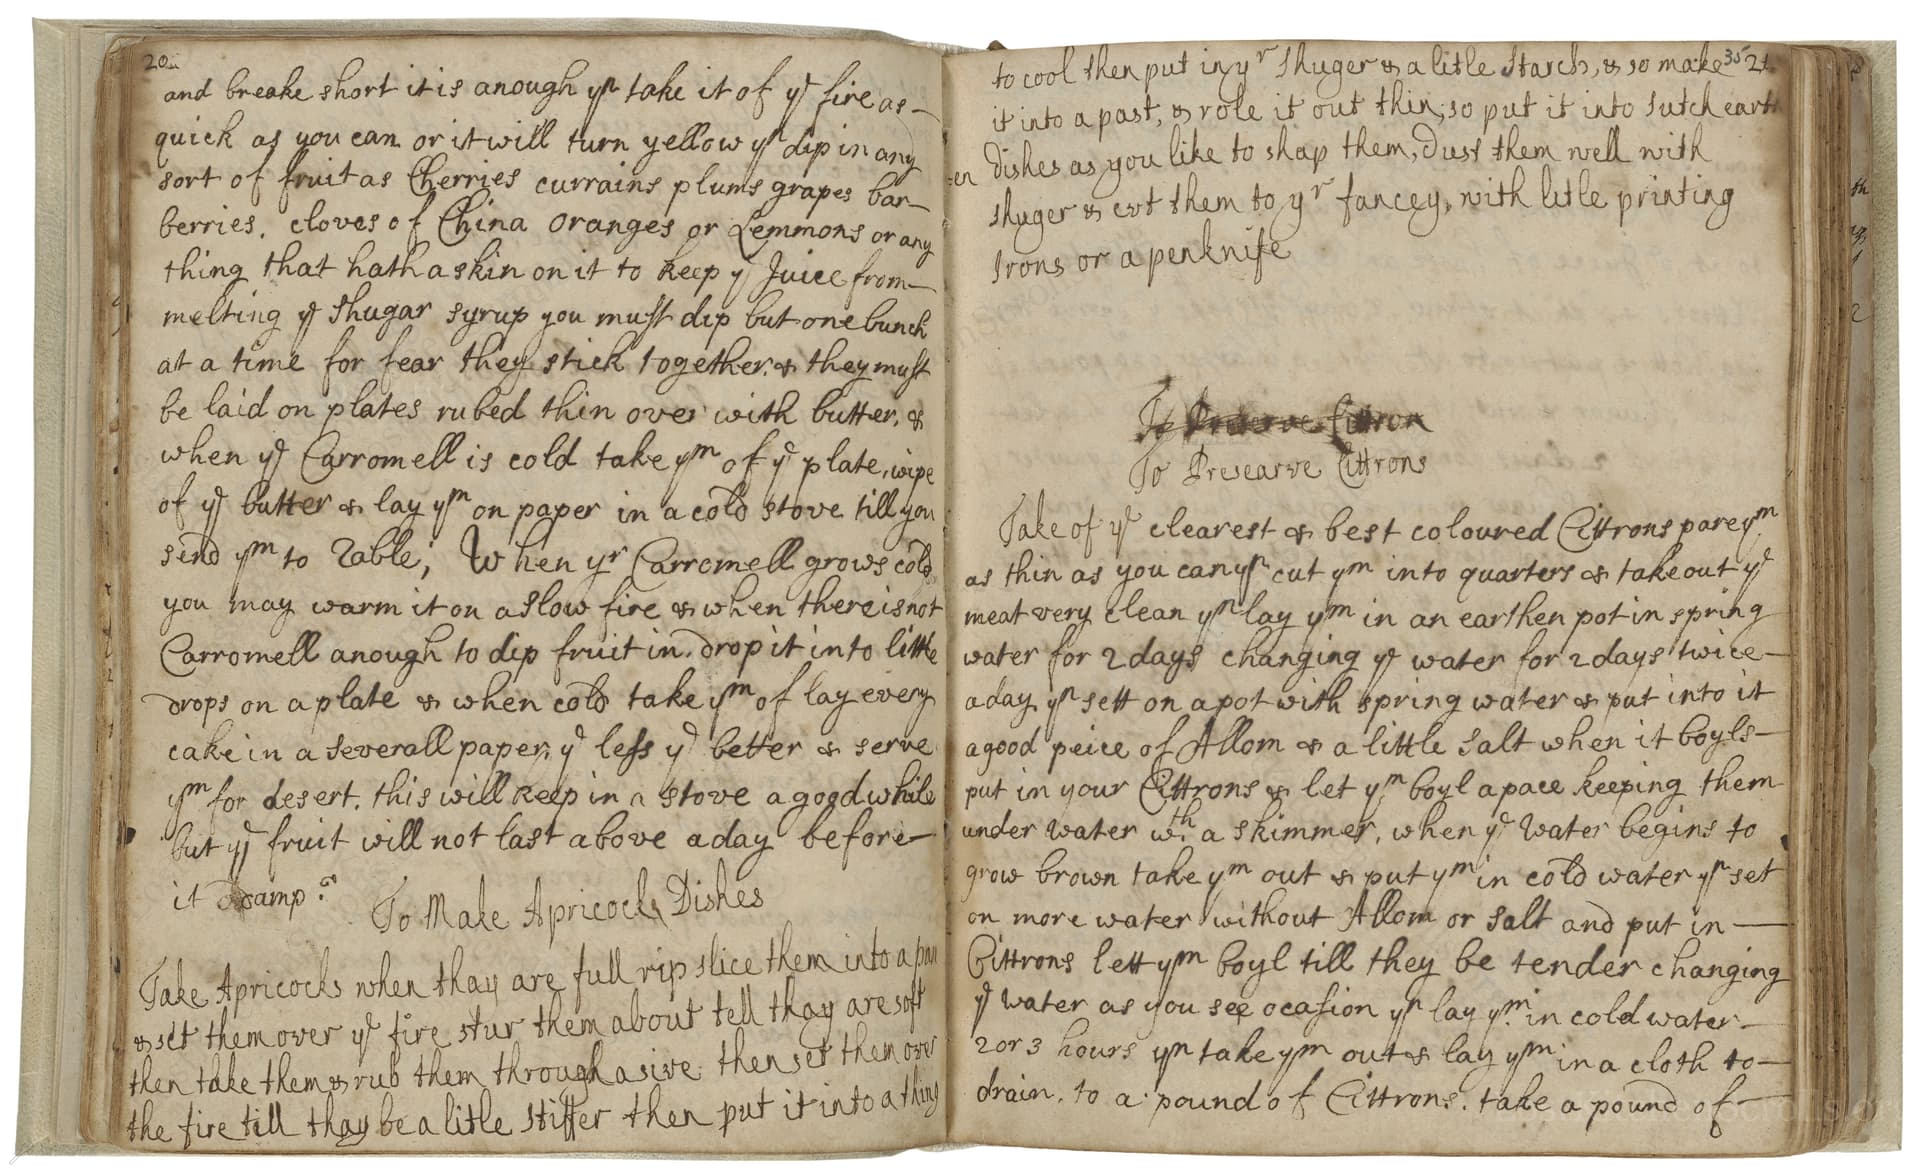 20
and breake short it is anough yn take it of ye fire as—
quick as you can or it will turn yellow yn dip in any
sort of fruit as Cherries currains plums grapes bar—
berries. cloves of China oranges or Lemmons or any
thing that hath a skin on it to keep ye Juice from—
melting ye shugar syrup you must dip but one bunch
at a time for fear they stick together. & they must
be laid on plates rubed thin over with butter. &
when ye Carromell is cold take ym of ye plate, wipe
of ye butter & lay ym on paper in a cold stove till you
send ym to Table; When yr Carromell grows cold
you may warm it on a slow fire & when there is not
Carromell anough to dip fruit in. drop it into little
drops on a plate & when cold take ym of lay every
cake in a severall paper; ye less ye better & serve
ym for desert. this will keep in a stove a good while
but ye fruit will not last above a day before—
it damp:
To Make Apricocks Dishes
Take Apricocks when thay are full rip slice them into a pan
& set them over ye fire stur them about tell thay are soft
then take them & rub them through a sive then set them over
the fire till thay be a litle stiffer then put it into a thing
35 21
to cool then put in yr shuger & a litle starch, & so make
it into a past, & role it out thin, so put it into sutch earth
en Dishes as you like to shap them, dust them well with
shuger & cut them to yr fancey, with litle printing
Irons or a penknife
To Preserve Cittron
To Presearve Cittrons
Take of ye clearest & best coloured Cittrons pare ym
as thin as you can yn cut ym into quarters & take out ye
meat very clean yn lay ym in an earthen pot in spring
water for 2 days changing ye water for 2 days twice—
a day, yn sett on a pot with spring water & put into it
a good peice of Allom & a little salt when it boyls—
put in your Cittrons & let ym boyl apace keeping them
under water wth a skimmer, when ye water begins to
grow brown take ym out & put ym in cold water yn set
on more water without Allom or salt and put in—
Cittrons lett ym boyl till they be tender changing
ye water as you see ocasion yn lay ym in cold water—
2 or 3 hours yn take ym out & lay ym in a cloth to—
drain. to a pound of Cittrons. take a pound of—